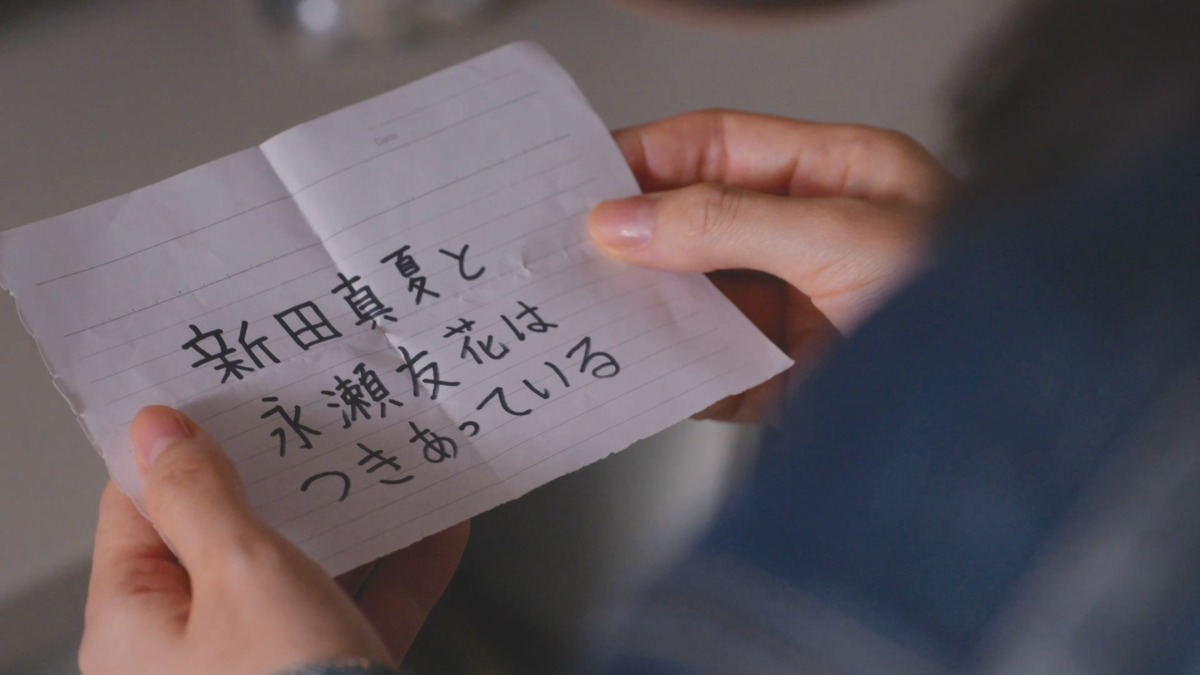 Date
新田真夏と
永瀬友花は
つきあっている